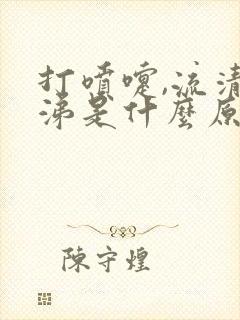 打噴嚏,流清
涕是什麼原
陳守煌